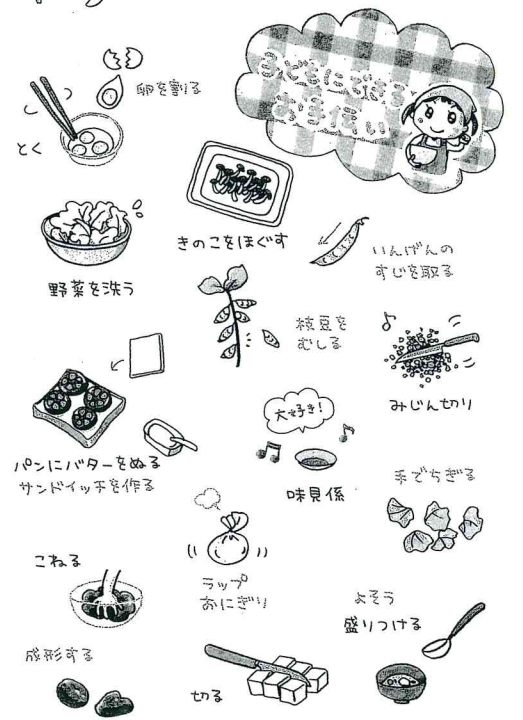 子どもにできる
お手伝い
卵を割る
とく
きのこをほぐす
野菜を洗う
いんげんの
すじを取る
枝豆を
むしる
みじん切り
パンにバターをぬる
サンドイッチを作る
大好き!
味見係
手でちぎる
こねる
ラップ
おにぎり
よそう
盛りつける
成形する
切る